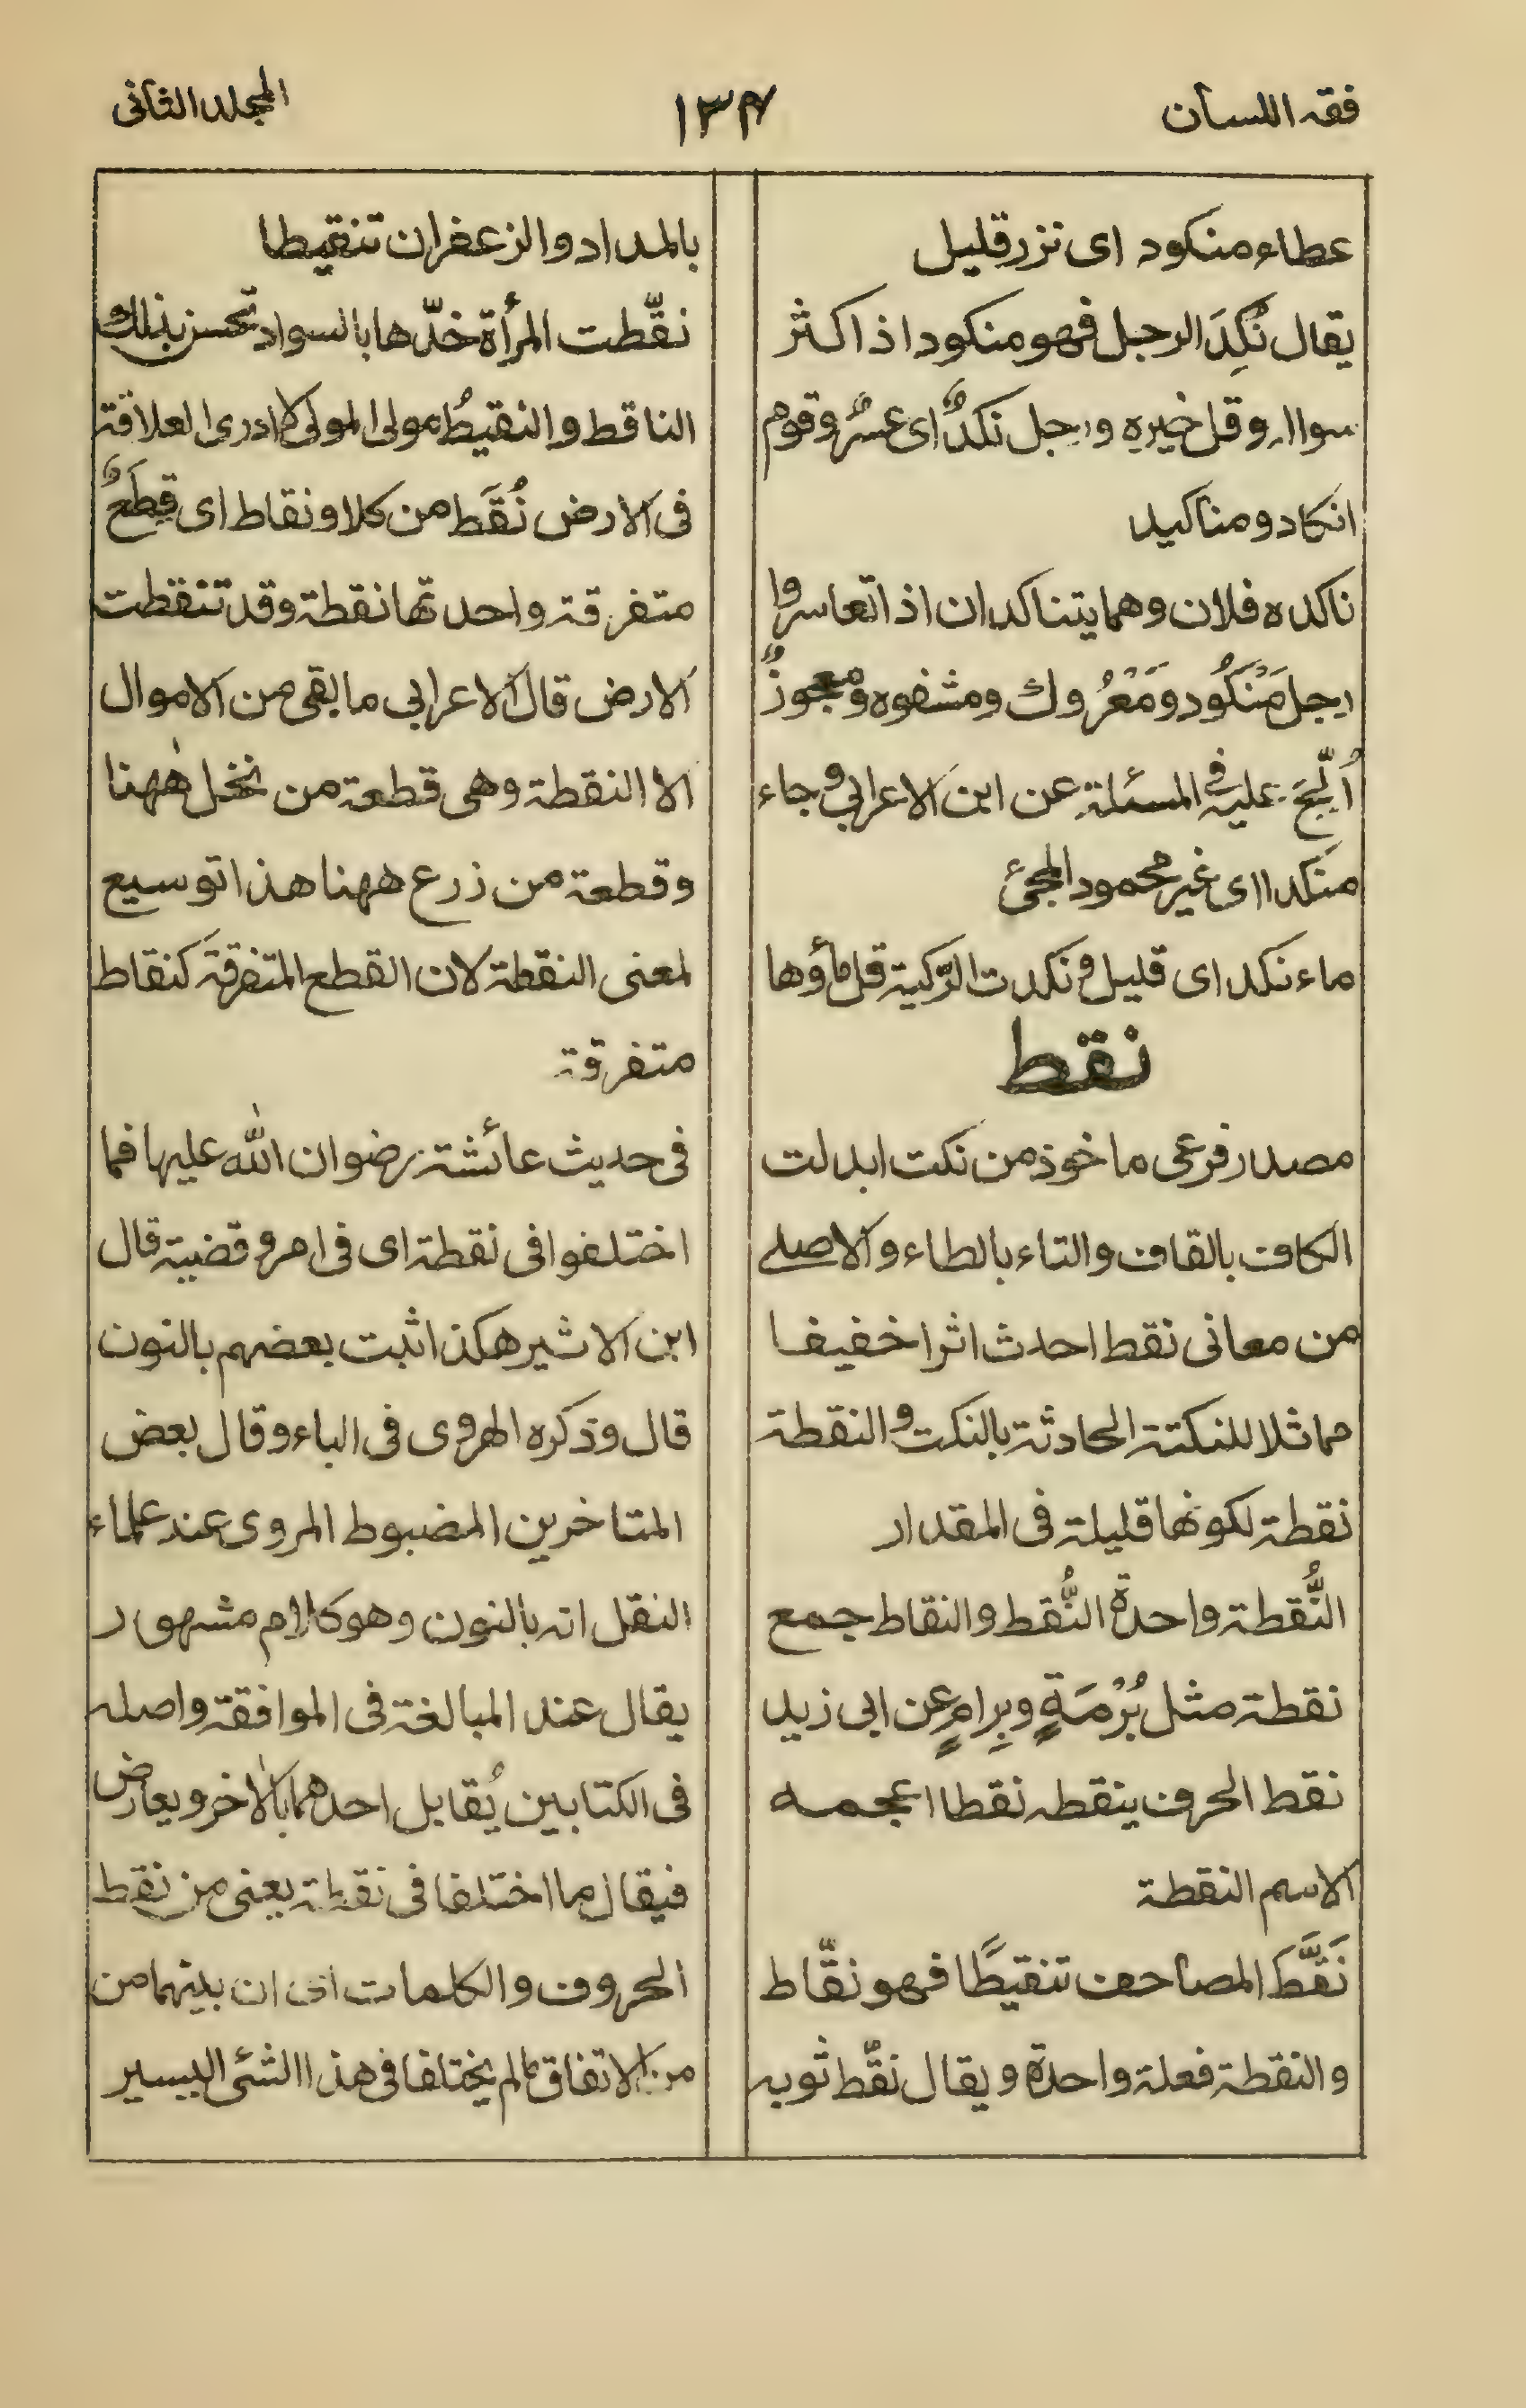 فقه اللسان
١٣٤
المجلد الثانى
عطاء منكود اى نزر قليل
يقال نُكِدَ الرجل فهو منكود اذا كثر
سواله وقل خيره ورجل نكدٌ اى عسرٌ وقوم
انكاد ومناكيد
ناكده فلان وهما يتناكدان اذا تعاسروا
رجل مَنْكُود ومَعْرُوك ومشفوه ومعجوزٌ
اُلِحَّ عليه فى المسئلة عن ابن الاعرابى وجاء
منكدا اى غير محمود المجئ
ماء نكد اى قليل ونكدت الرّكية قل مأوها
نقط
مصدر فرعى ماخوذ من نكت ابدلت
الكاف بالقاف والتاء بالطاء والاصلے
من معانى نقط احدث اثرا خفيفا
مماثلا للنكتة الحادثة بالنكت والنقطة
نقطة لكونها قليلة فى المقدار
النُّقطة واحدة النُّقط والنقاط جمع
نقطة مثل بُرْمَةٍ وبِرامٍ عن ابى زيد
نقط الحرف ينقطه نقطا اعجمه
الاسم النقطة
نَقَّطَ المصاحف تنقيطًا فهو نقّاط
والنقطة فعلة واحدة ويقال نقّط ثوبه
بالمداد والزعفران تنقيطا
نقّطت المرأة خدّها بالسواد تحسن بذلك و
الناقط والنقيطُ مولى المولى لا ادرى العلاقة
فى الارض نُقَط من كلا ونقاط اى قِطَعٌ
متفرقة واحدتها نقطة وقد تنقطت
الارض قال الاعرابى ما بقى من الاموال
الا النقطة وهى قطعة من نخل ههنا
وقطعة من زرع ههنا هذا توسيع
لمعنى النقطة لان القطع المتفرقة كنقاط
متفرقة
فى حديث عائشة رضوان الله عليها فما
اختلفوا فى نقطة اى فى امر وقضية قال
ابن الاثير هكذا ثبت بعضهم بالنون
قال وذكره الهروى فى الباء وقال بعض
المتاخرين المضبوط المروى عند علماء
النقل انه بالنون وهو كلام مشهور
يقال عند المبالغة فى الموافقة واصله
فى الكتابين يُقابل احدهما بالاخر ويعارض
فيقال ما اختلفا فى نقطة يعنى من نقط
الحروف والكلمات اى ان بينهما من
من الاتفاق مالم يختلفا فى هذا الشئ اليسير